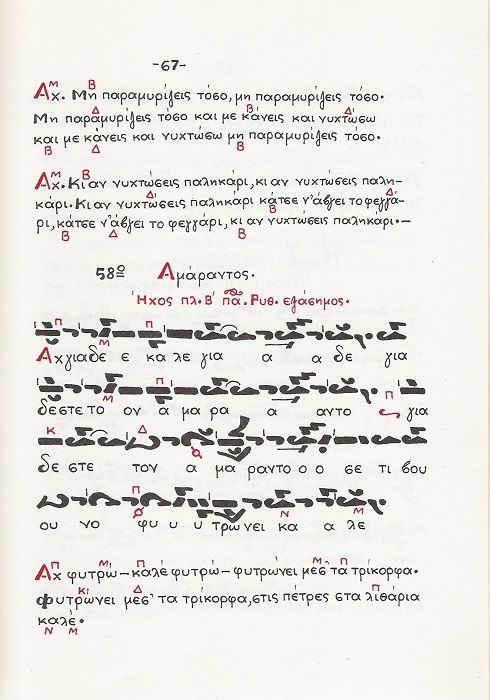 -67-
Αχ. Μη παραμυρίζεις τόσο, μη παραμυρίζεις τόσο.
Μη παραμυρίζεις τόσο και με κάνεις και νυχτώσω
και με κάνεις και νυχτώσω μη παραμυρίζεις τόσο.
Αχ. Κι αν νυχτώσεις παληκάρι, κι αν νυχτώσεις παλη-
κάρι. Κι αν νυχτώσεις παληκάρι κάτσε ν' άβγει το φεγγά-
ρι, κάτσε ν' άβγει το φεγγάρι, κι αν νυχτώσεις παληκάρι.-
58ο Αμάραντος.
Ήχος πλ. Β' πα. Ρυθ. εξάσημος.
Μ Π Π
Αχ για δε ε κα λε για α α δε για
Μ Π Π
δέστε το ον α μα ρα α αντο για
Κ Δ
δε στε τον α μα ραντο ο ο σε τι βου
Π Ν Μ
ου νο φυ υ υ τρωνει κα α λε
Π Μ Π Μ Π
Αχ φυτρώ – καλέ φυτρώ – φυτρώνει μεσ' τα τρίκορφα.
Κ Δ Π
Φυτρώνει μεσ' τα τρίκορφα, στις πέτρες στα λιθάρια
καλέ.
Ν Μ